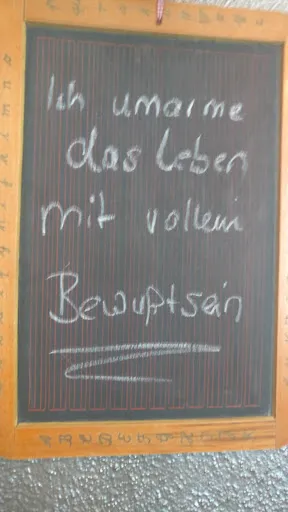 Ich umarme
das Leben
mit vollem
Bewußtsein